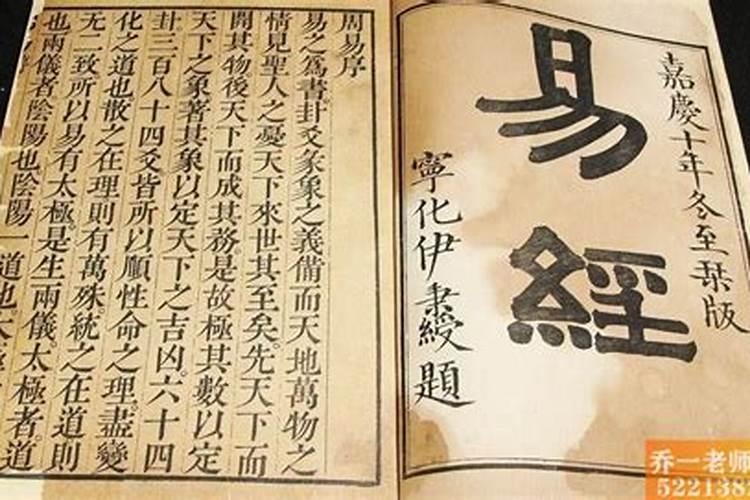 嘉慶十年冬至栞版
易經
寧化伊秉綬題
周易序
易之爲書。卦爻彖象之義備而天地萬物之
情見聖人之憂天下來世其至矣。先天下而
開其物後天下而成其務是故極其數以定
天下之象著其象以定天下之吉凶。六十四
卦三百八十四爻皆所以順性命之理。盡變
化之道也散之在理則有萬殊。統之在道則
无一致所以易有太極。是生兩儀太極者。道
也兩儀者陰陽也陰陽一道也太
乔一老师
522138